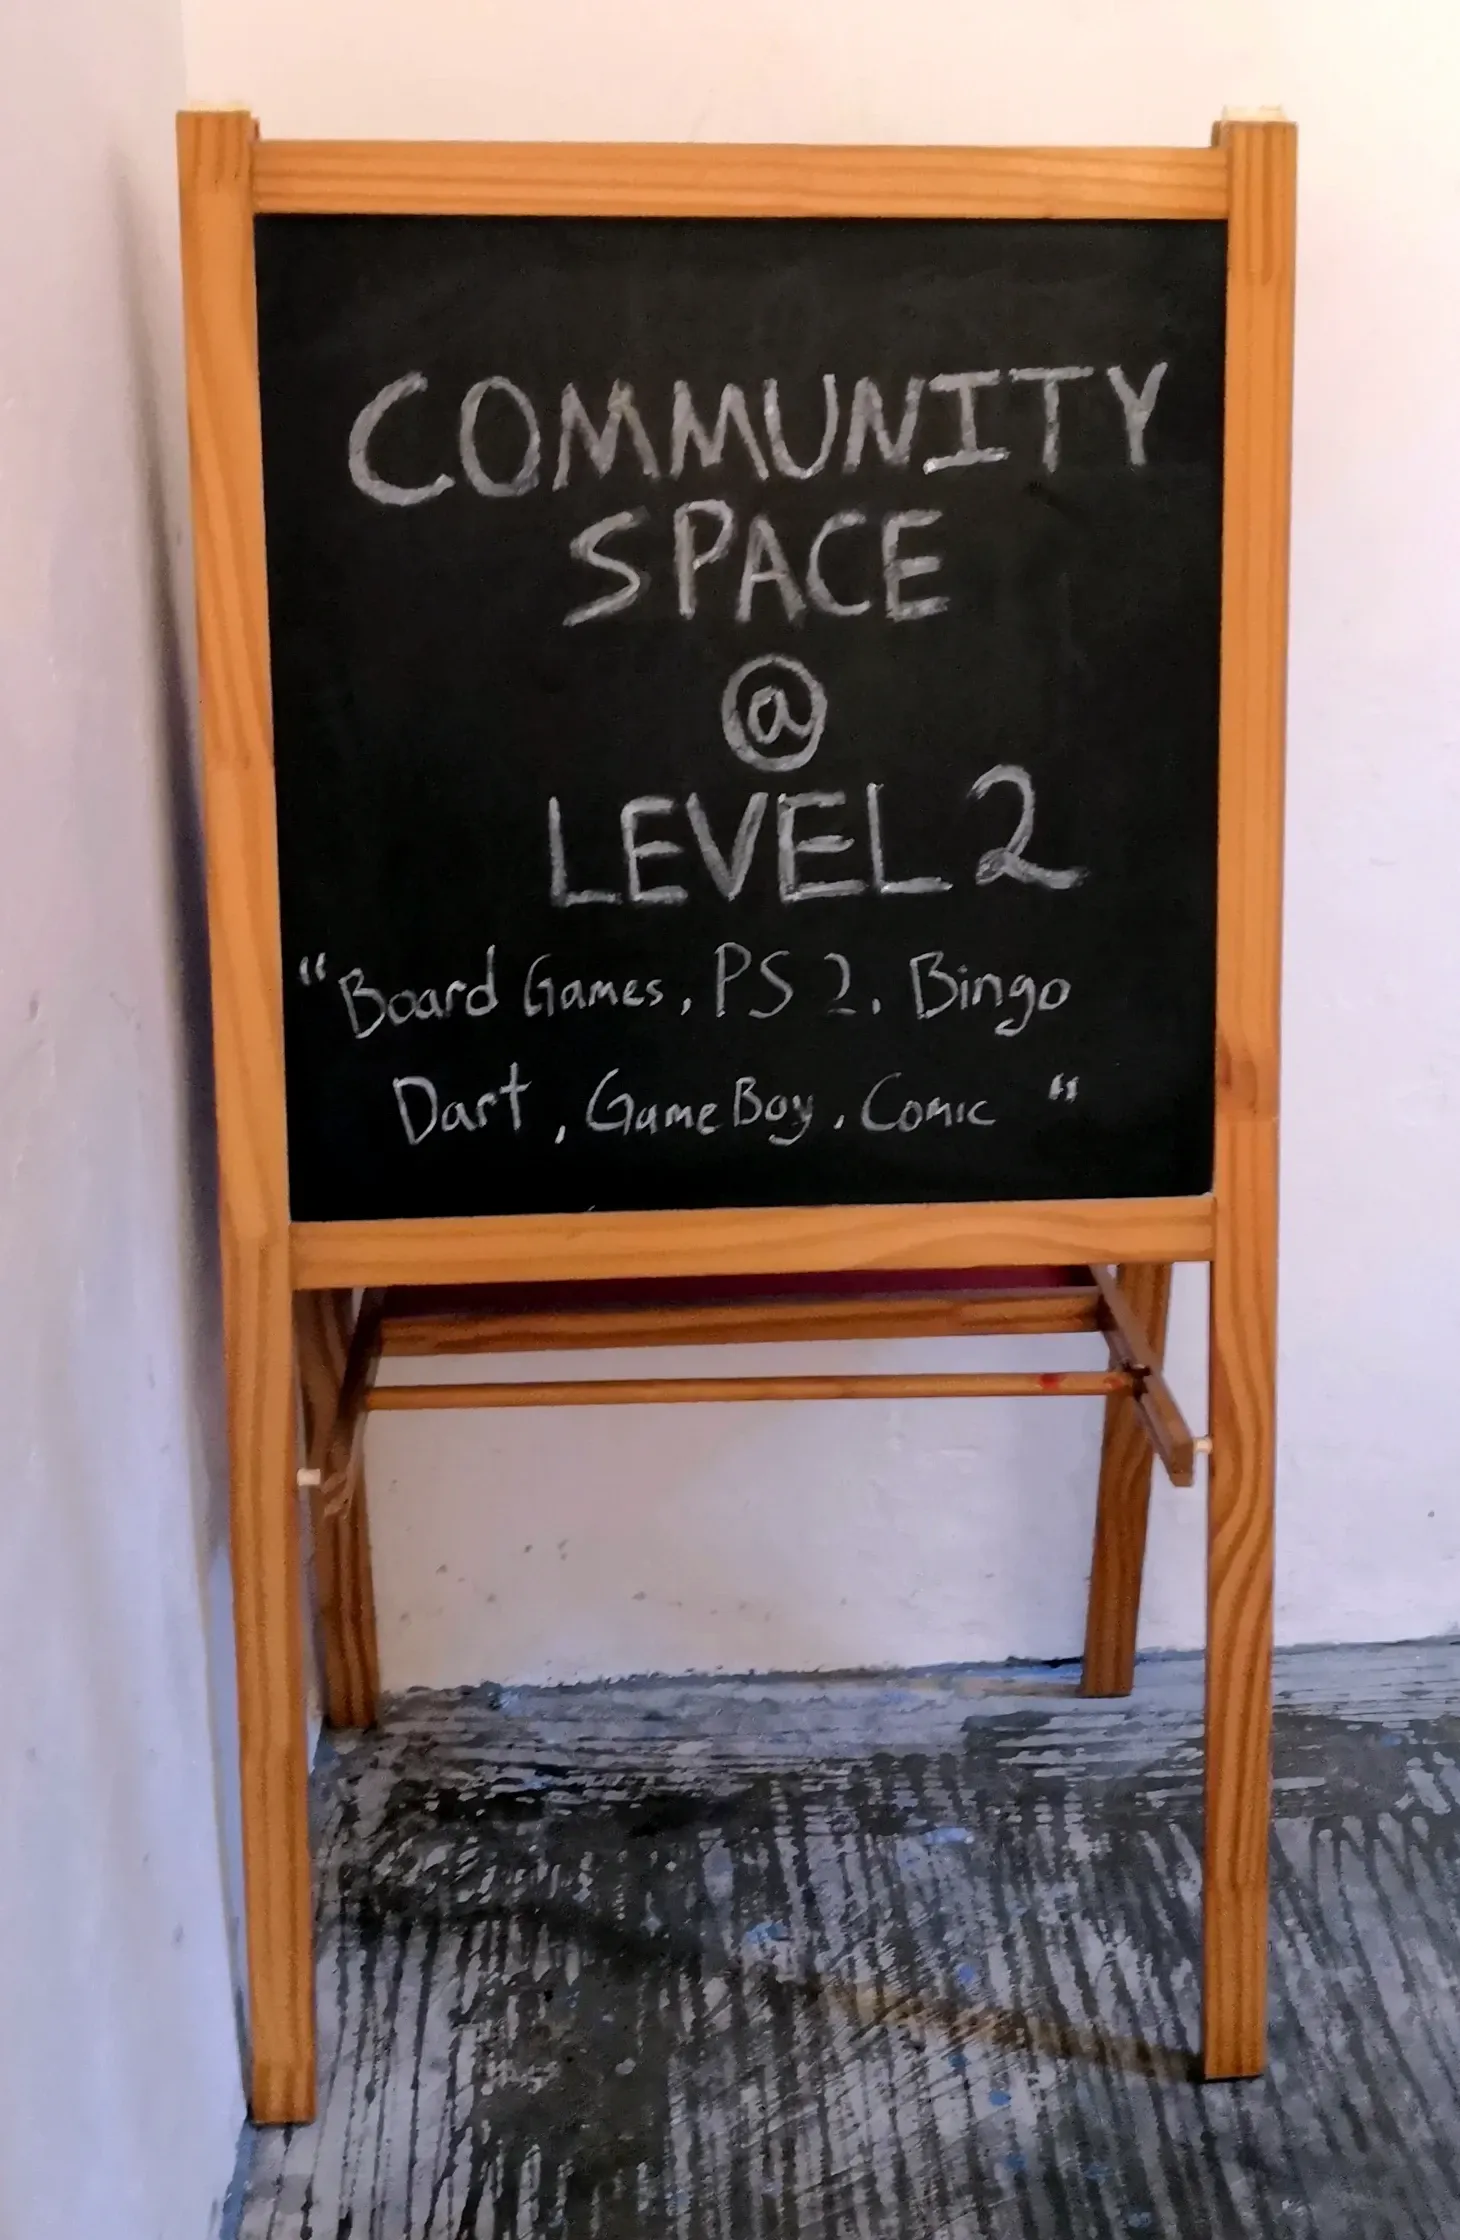 COMMUNITY
SPACE
@
LEVEL 2
"Board Games, PS 2, Bingo
Dart, GameBoy, Comic "